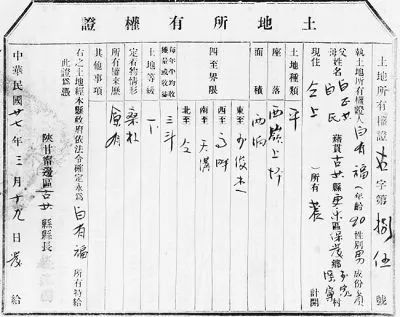 土地所有權證
土地所有權證 字第 捌伍 號
執土地所有權證人 白有福 (年齡40性別男成份
父母姓名 白正 白氏 籍貫 縣 東區保安鄉 村
現住 仝上 (所有 農 計開
土地種類 平
座落 西嶺上
面積 兩垧
四至界限 東至 西至 南至 天溝 北至 仝
每年平均收穫量或收益 三斗
土地等級 下
定着物情形 桑杜
所有權來歷 原有
其他事項
右之土地經本縣政府依法令確定永為 白有福 所有特給
此證為憑
陝甘寧邊區 縣縣長
中華民國廿七年三月十九日 給